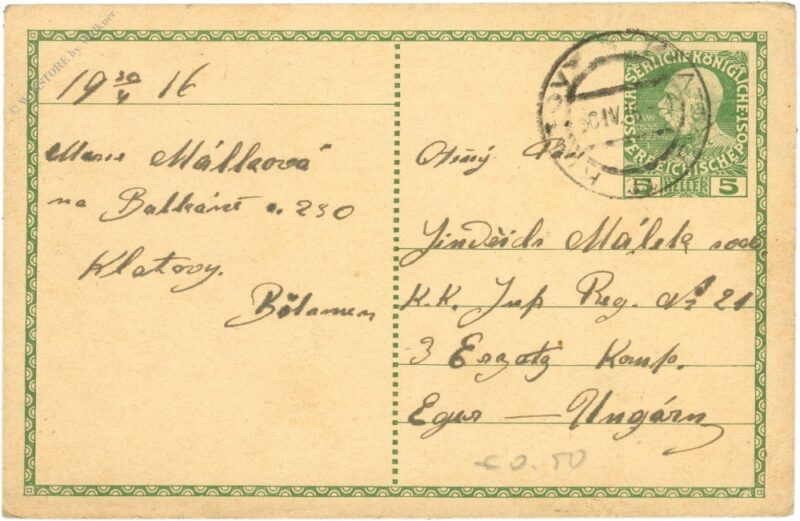 © WEBSTORE by Viennslide
19 30/4 16
Marie Málková
na Balkáně č. 230
Klatovy.
Böhmen
KLATOVY
30 IV
KAISERLICHE KÖNIGLICHE
ÖSTERREICHISCHE POST
5 HELLER 5
Ctěný Pan
Jindřich Málek
K.K. Inf Reg. № 21
3 Ersatz Komp.
Eger — Ungarn
€ 0.50